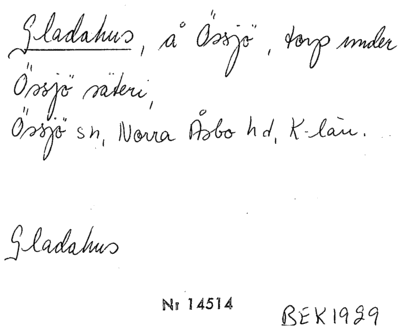 Gladahus, å Össjö, torp under
Össjö säteri,
Össjö sn, Norra Åsbo hd, K-län.
Gladahus
Nr 14514
BEK1929